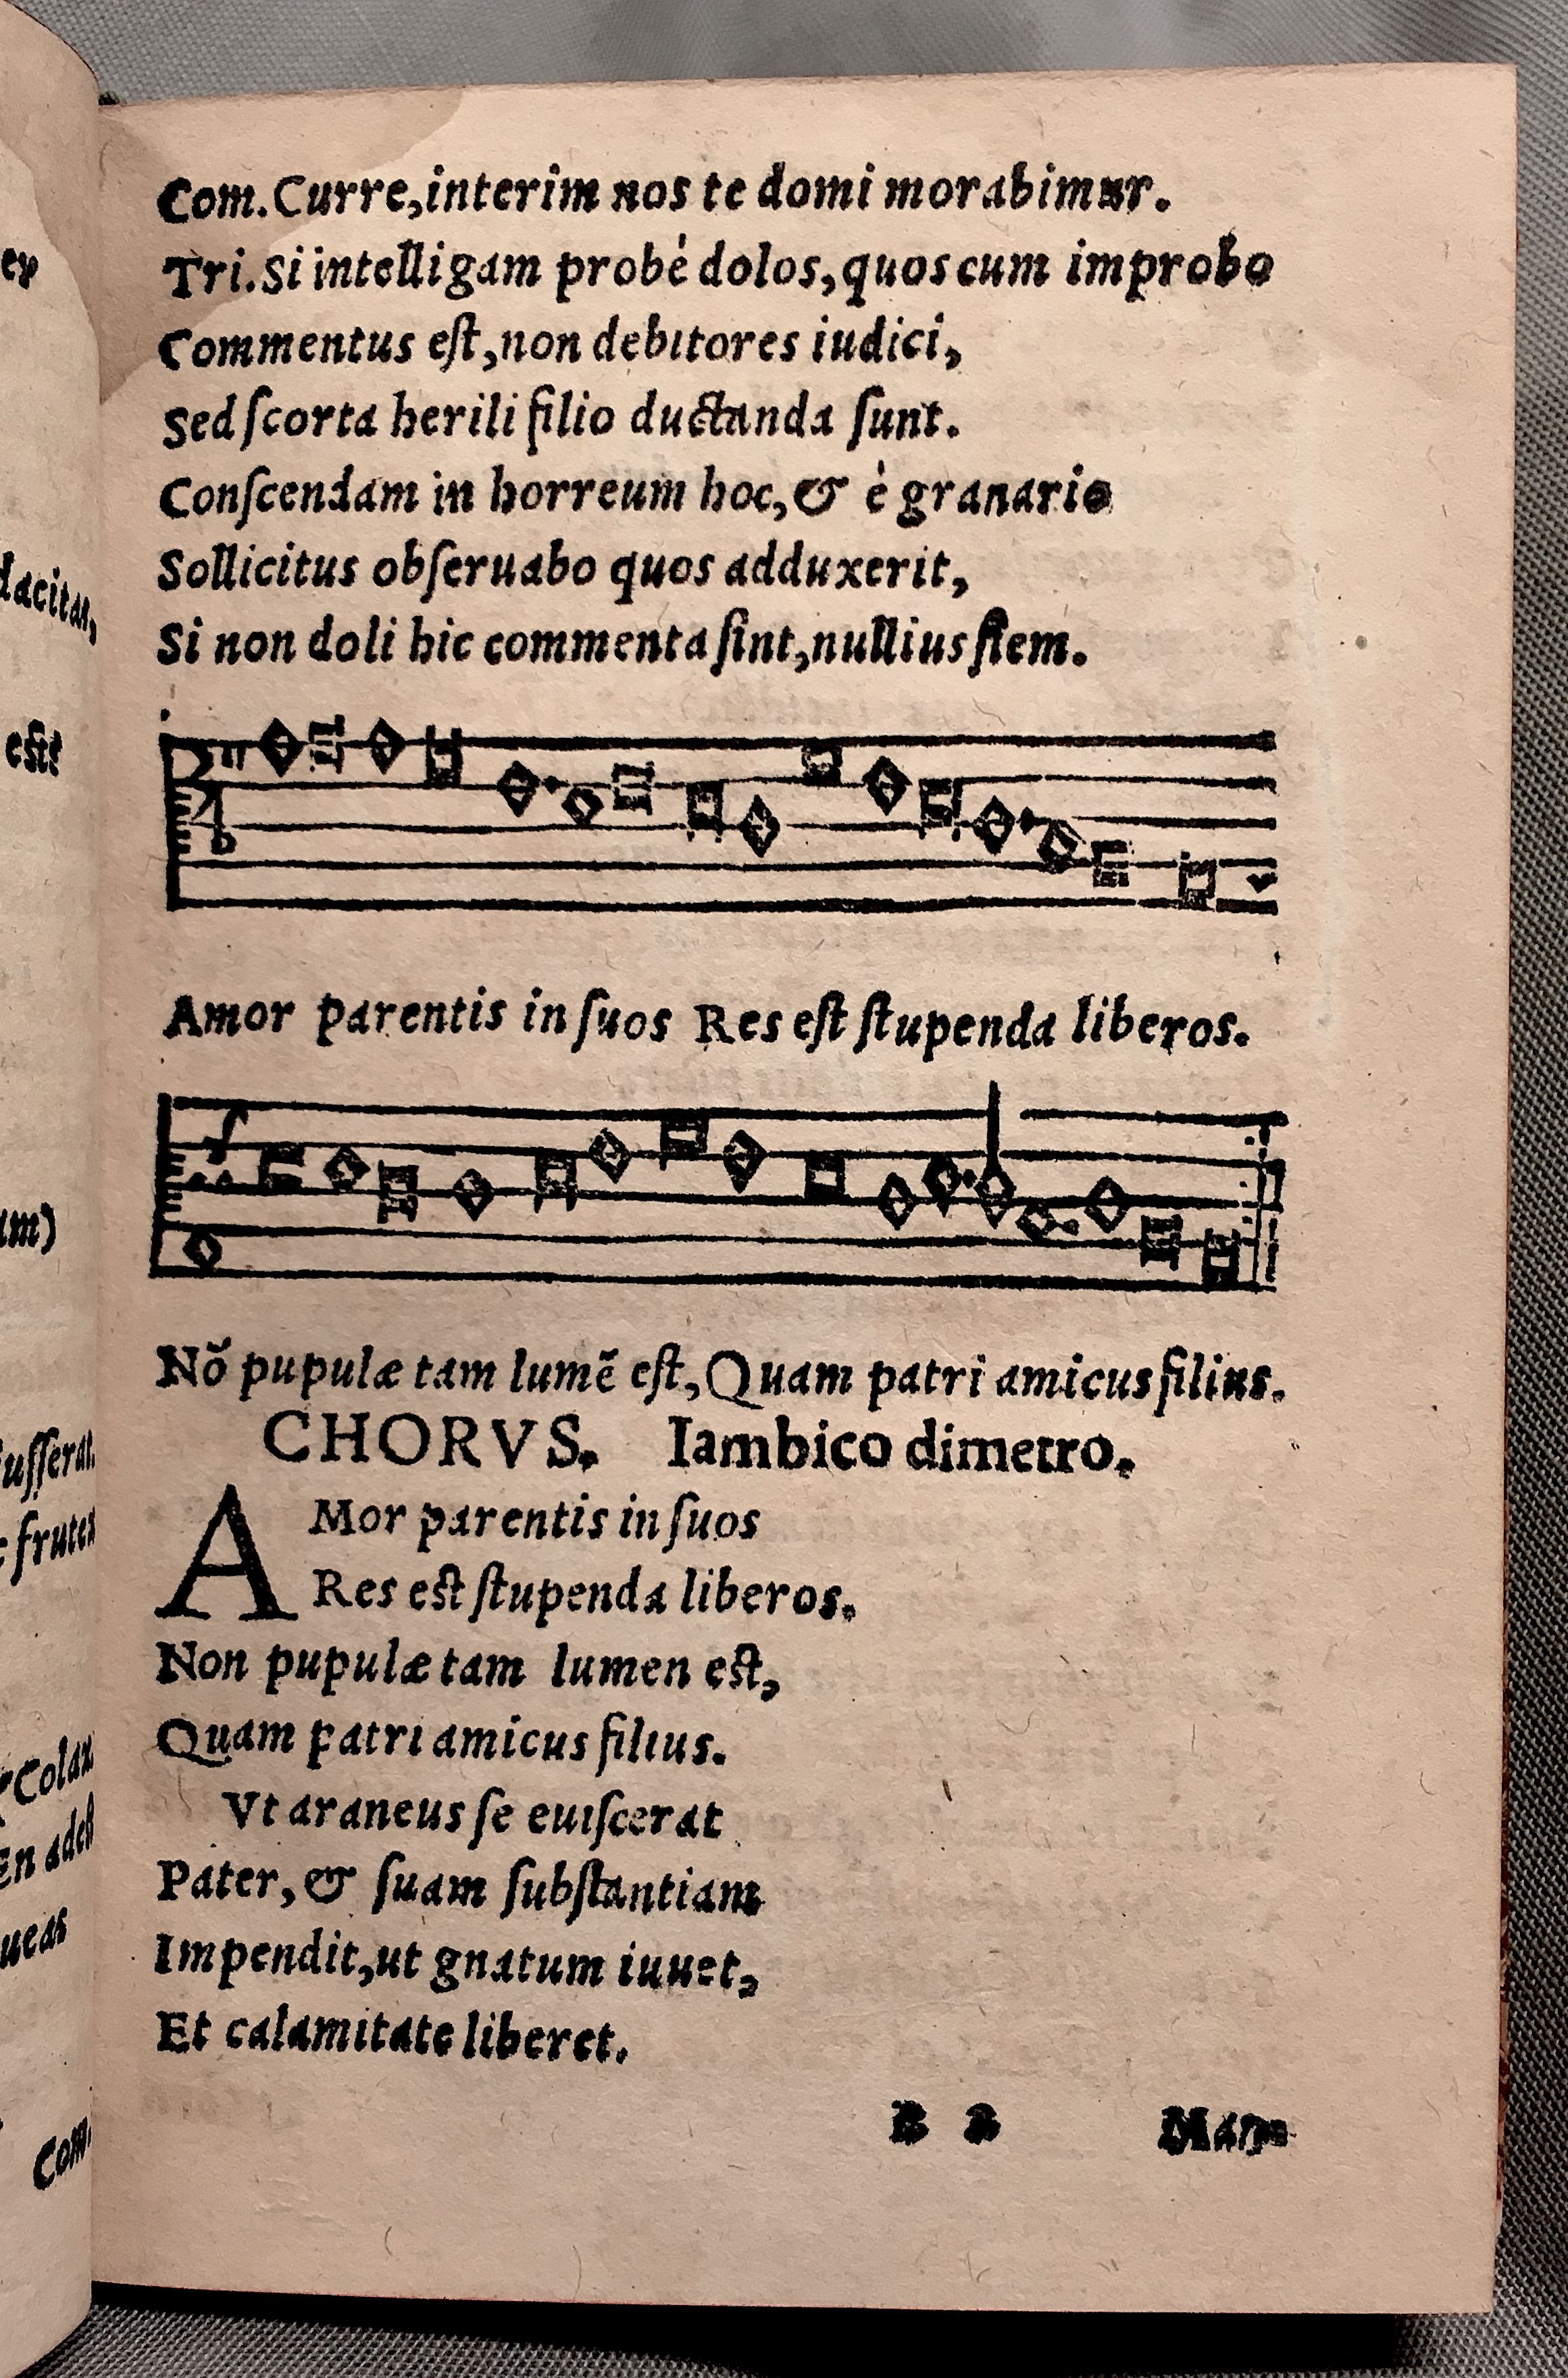 Com. Curre, interim nos te domi morabimur.
Tri. Si intelligam probè dolos, quos cum improbo
Commentus eſt, non debitores iudici,
Sed ſcorta herili filio ductanda ſunt.
Conſcendam in horreum hoc, & è granario
Sollicitus obſeruabo quos adduxerit,
Si non doli hic commenta ſint, nullius ſiem.
Amor parentis in ſuos Res eſt ſtupenda liberos.
Nõ pupulæ tam lumẽ eſt, Quam patri amicus filius.
CHORVS. Iambico dimetro.
AMor parentis in ſuos
Res eſt ſtupenda liberos.
Non pupulæ tam lumen eſt,
Quam patri amicus filius.
Vt araneus ſe euiſcerat
Pater, & ſuam ſubſtantiam
Impendit, ut gnatum iuuet,
Et calamitate liberet.
dacitas,
eſt
um)
Colax
ueas
Com.